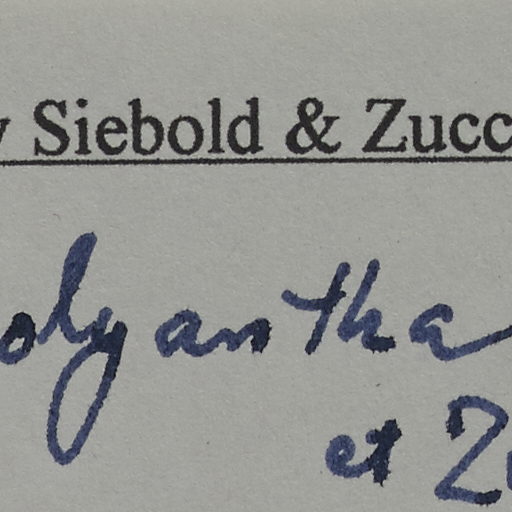 y Siebold & Zucc
olyantha
et Zu